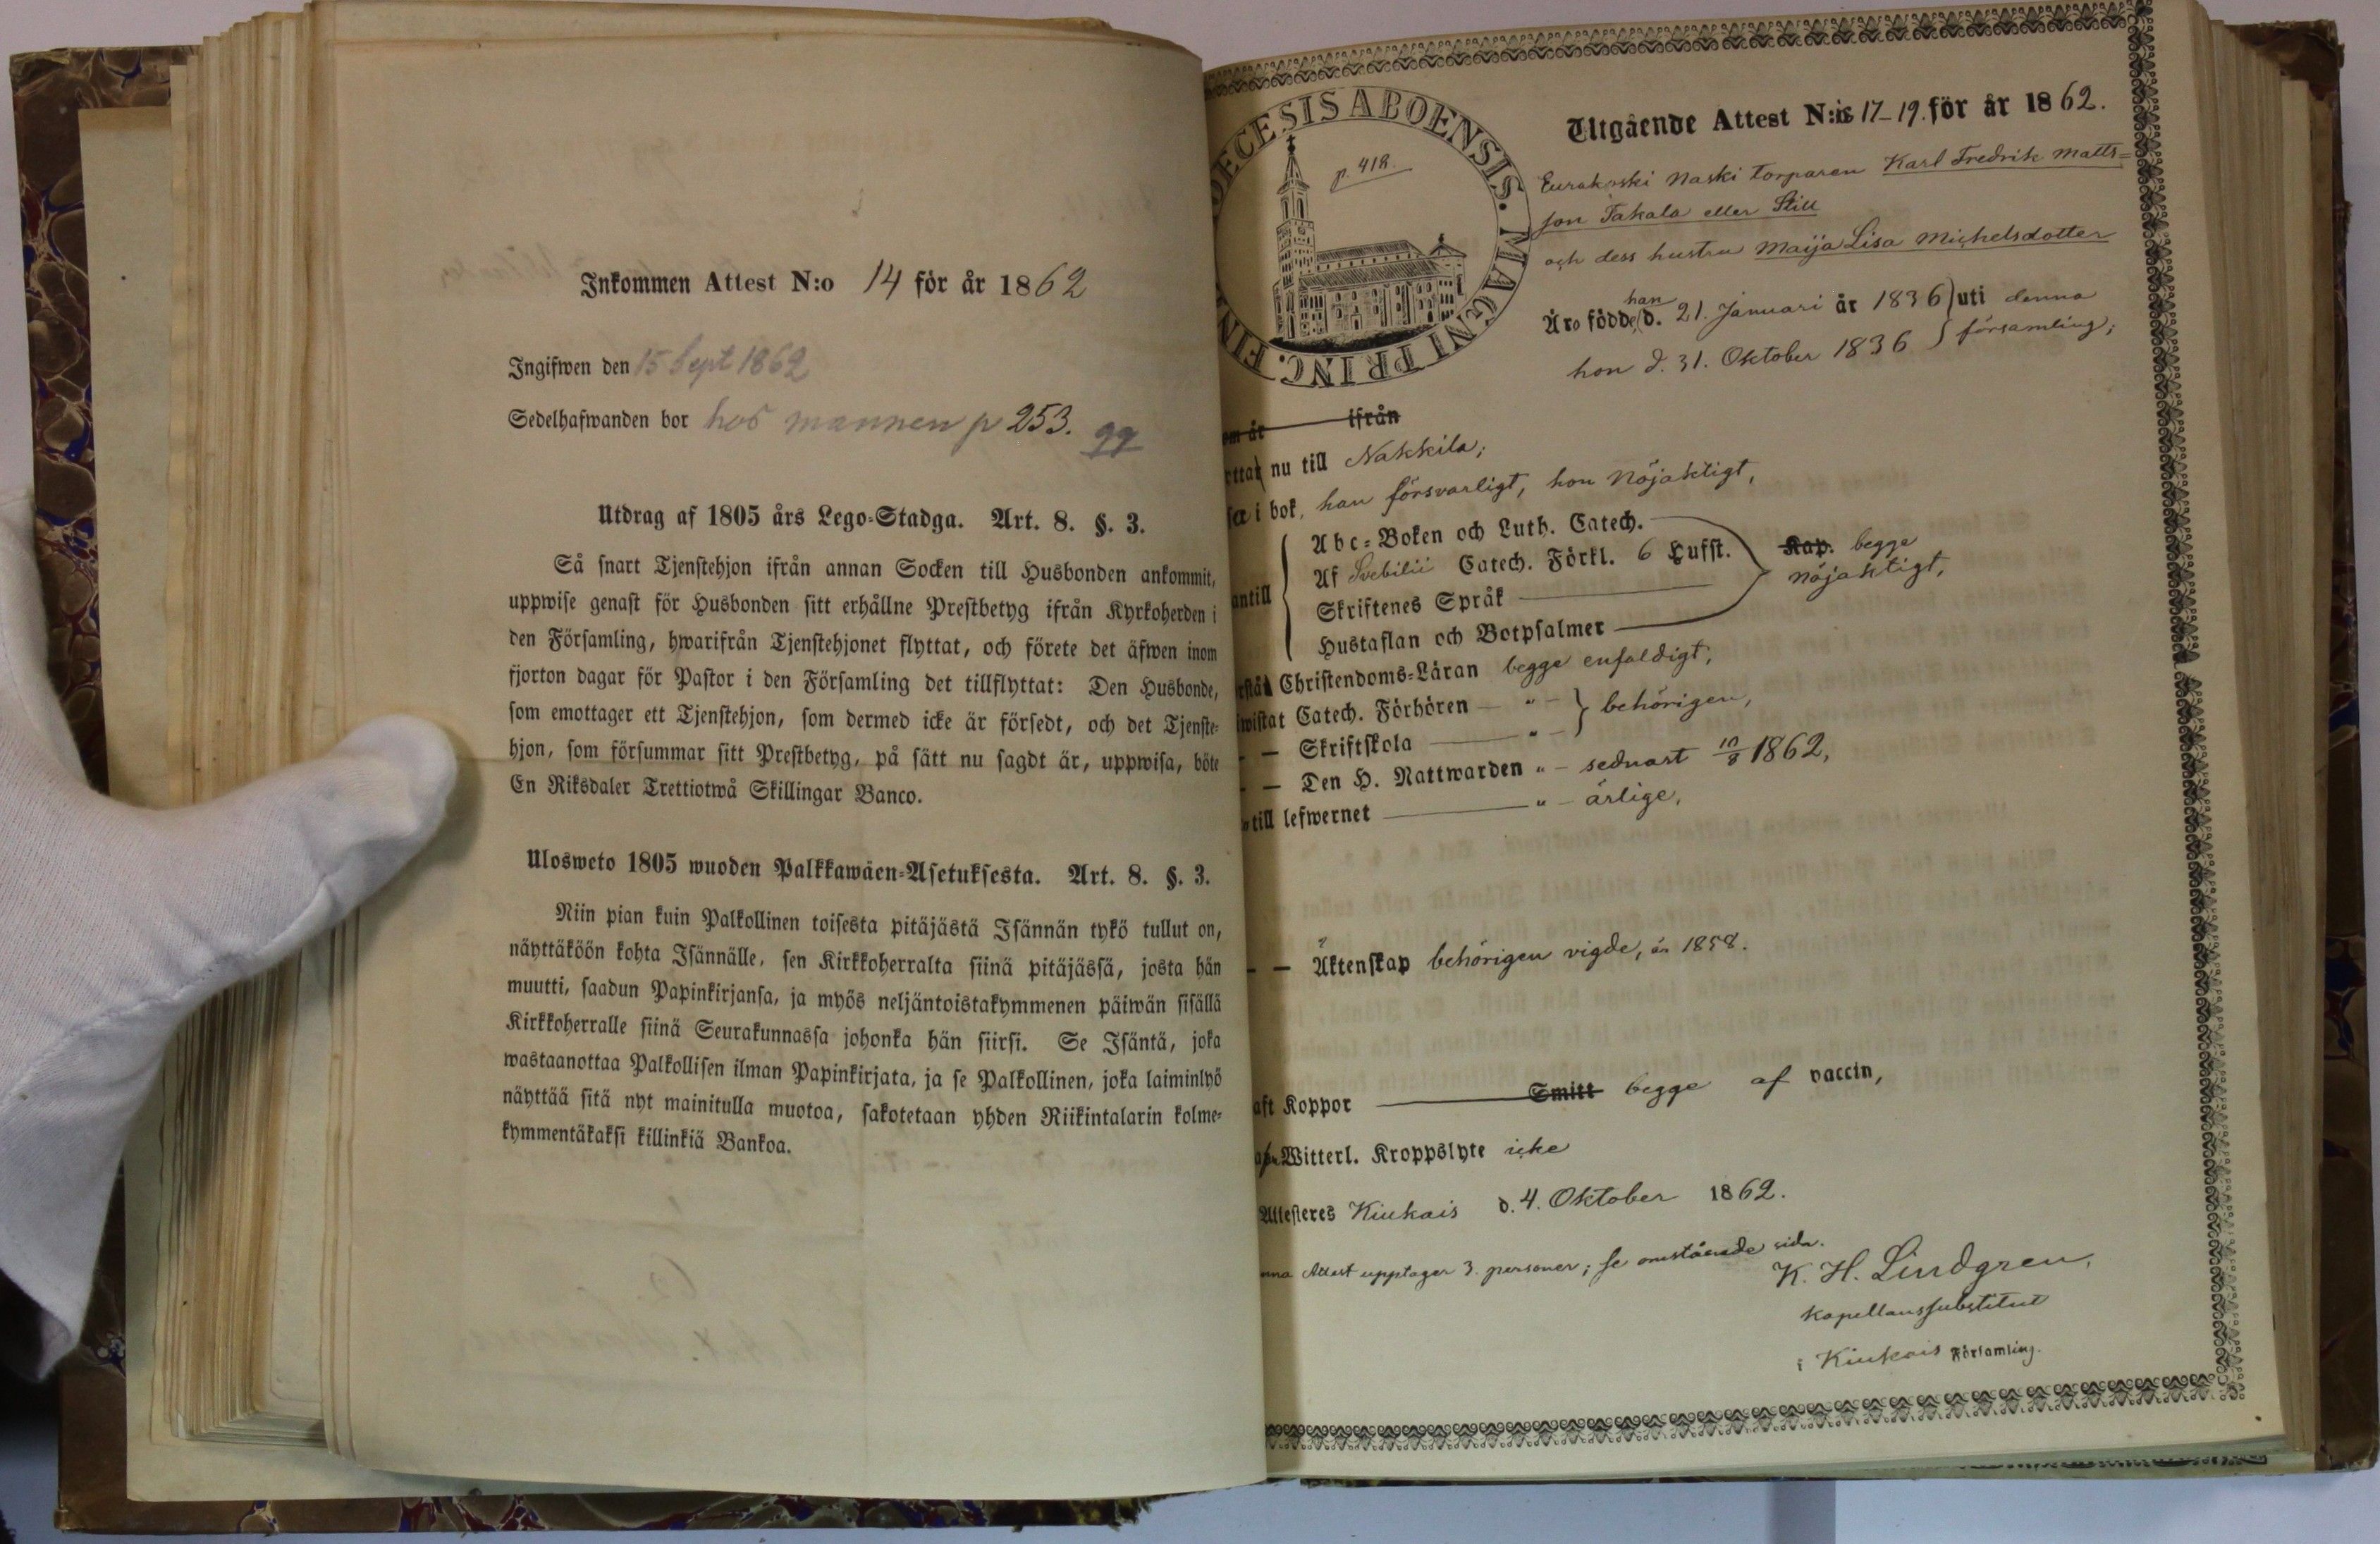 Inkommen Attest N:o 14 för år 1862
Ingifwen den 15 Sept 1862
Sedelhafwanden bor hos mannen p 253.
99
Utdrag af 1805 års Lego-Stadga. Art. 8. §. 3.
Så snart Tjenstehjon ifrån annan Socken till Husbonden ankommit,
uppwise genast för Husbonden sitt erhållne Prestbetyg ifrån Kyrkoherden i
den Församling, hwarifrån Tjenstehjonet flyttat, och förete det äfwen inom
fjorton dagar för Pastor i den Församling det tillflyttat: Den Husbonde,
som emottager ett Tjenstehjon, som dermed icke är försedt, och det Tjenste-
hjon, som försummar sitt Prestbetyg, på sätt nu sagdt är, uppwisa, böte
En Riksdaler Trettiotwå Skillingar Banco.
Ulosweto 1805 wuoden Palkkawäen-Asetuksesta. Art. 8. §. 3.
Niin pian kuin Palkollinen toisesta pitäjästä Isännän tykö tullut on,
näyttäköön kohta Isännälle, sen Kirkkoherralta siinä pitäjässä, josta hän
muutti, saadun Papinkirjansa, ja myös neljäntoistakymmenen päiwän sisällä
Kirkkoherralle siinä Seurakunnassa johonka hän siirsi. Se Isäntä, joka
wastaanottaa Palkollisen ilman Papinkirjata, ja se Palkollinen, joka laiminlyö
näyttää sitä nyt mainitulla muotoa, sakotetaan yhden Riikintalarin kolme-
kymmentäkaksi killinkiä Bankoa.
OECESIS ABOENSIS. MAGNI PRINC. FIN
p. 418.
Utgående Attest N:is 17-19. för år 1862.
Eurakoski Naski torparen Karl Fredrik Matts=
son Takala eller Still
och dess hustru Maija Lisa Michelsdotter
Äro födde, han d. 21. Januari år 1836 } uti denna
hon d. 31. Oktober 1836 } församling;
om är ifrån
ttat nu till Nakkila;
sa i bok, han försvarligt, hon nöjaktigt,
Abc-Boken och Luth. Catech.
Af Svebilii Catech. Förkl. 6 Hufst. Kap. begge
antill Skriftenes Språk nöjaktigt,
Hustaflan och Botpsalmer
rstå Christendoms-Läran begge enfaldigt,
iwistat Catech. Förhören — " — } behörigen,
— Skriftskola — " —
— Den H. Nattwarden " — sednast 10/8 1862,
till lefwernet — " — ärlige,
— — Äktenskap behörigen vigde, år 1858.
aft Koppor Smitt begge af vaccin,
Witterl. Kroppslyte icke
Attesteres Kiukais d. 4. Oktober 1862.
nna Attest upptager 3. personer; se omstående sida.
K. H. Lindgren,
Kapellanssubstitut
i Kiukais Församling.